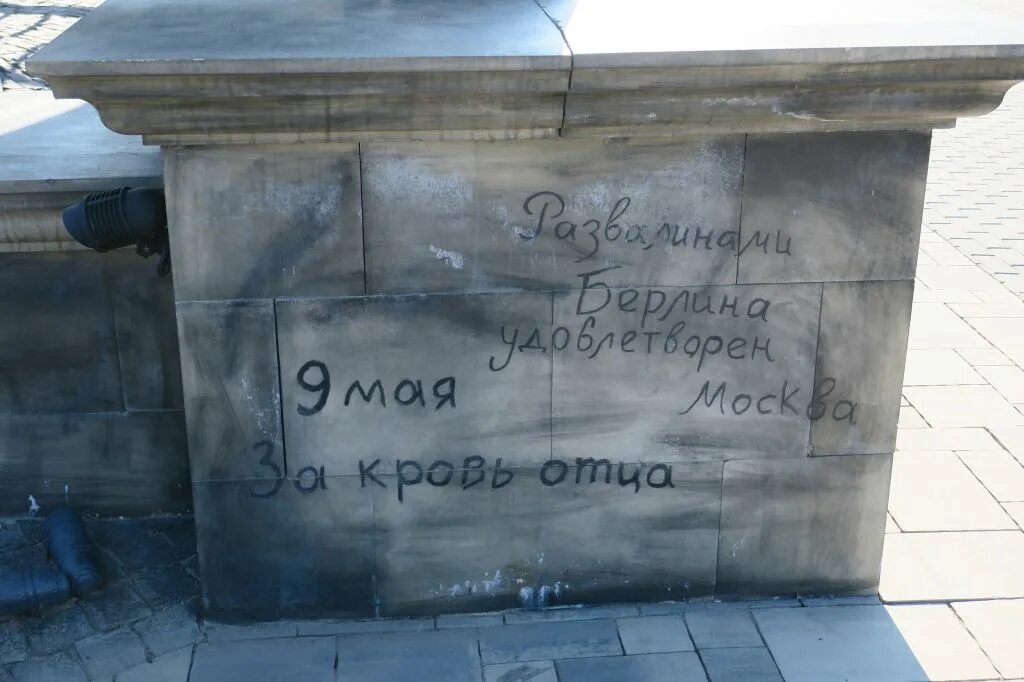 Развалинами
Берлина
удовлетворен
Москва
9 мая
За кровь отца